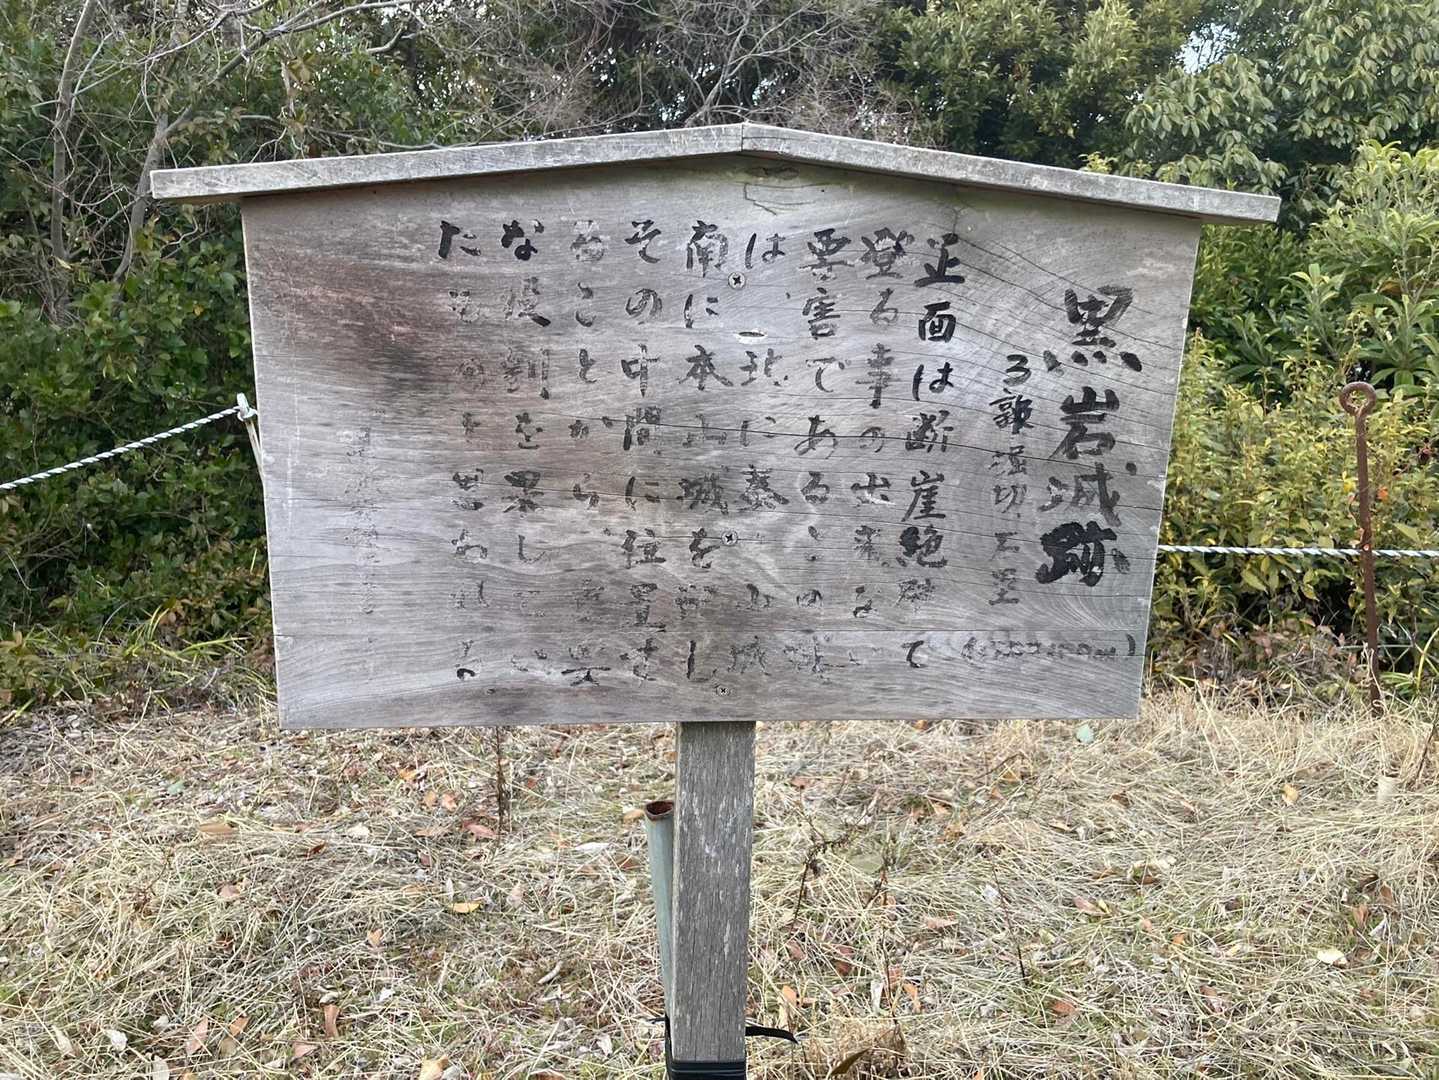 黒岩城跡
3郭 堀切 石塁
正面は断崖絶壁で
登る事の出来ない
要害である この城
は、北に 山城
南に本山城を配し
その中間に位置す
ることから 重要
な役割を果してい
たものと思われる。